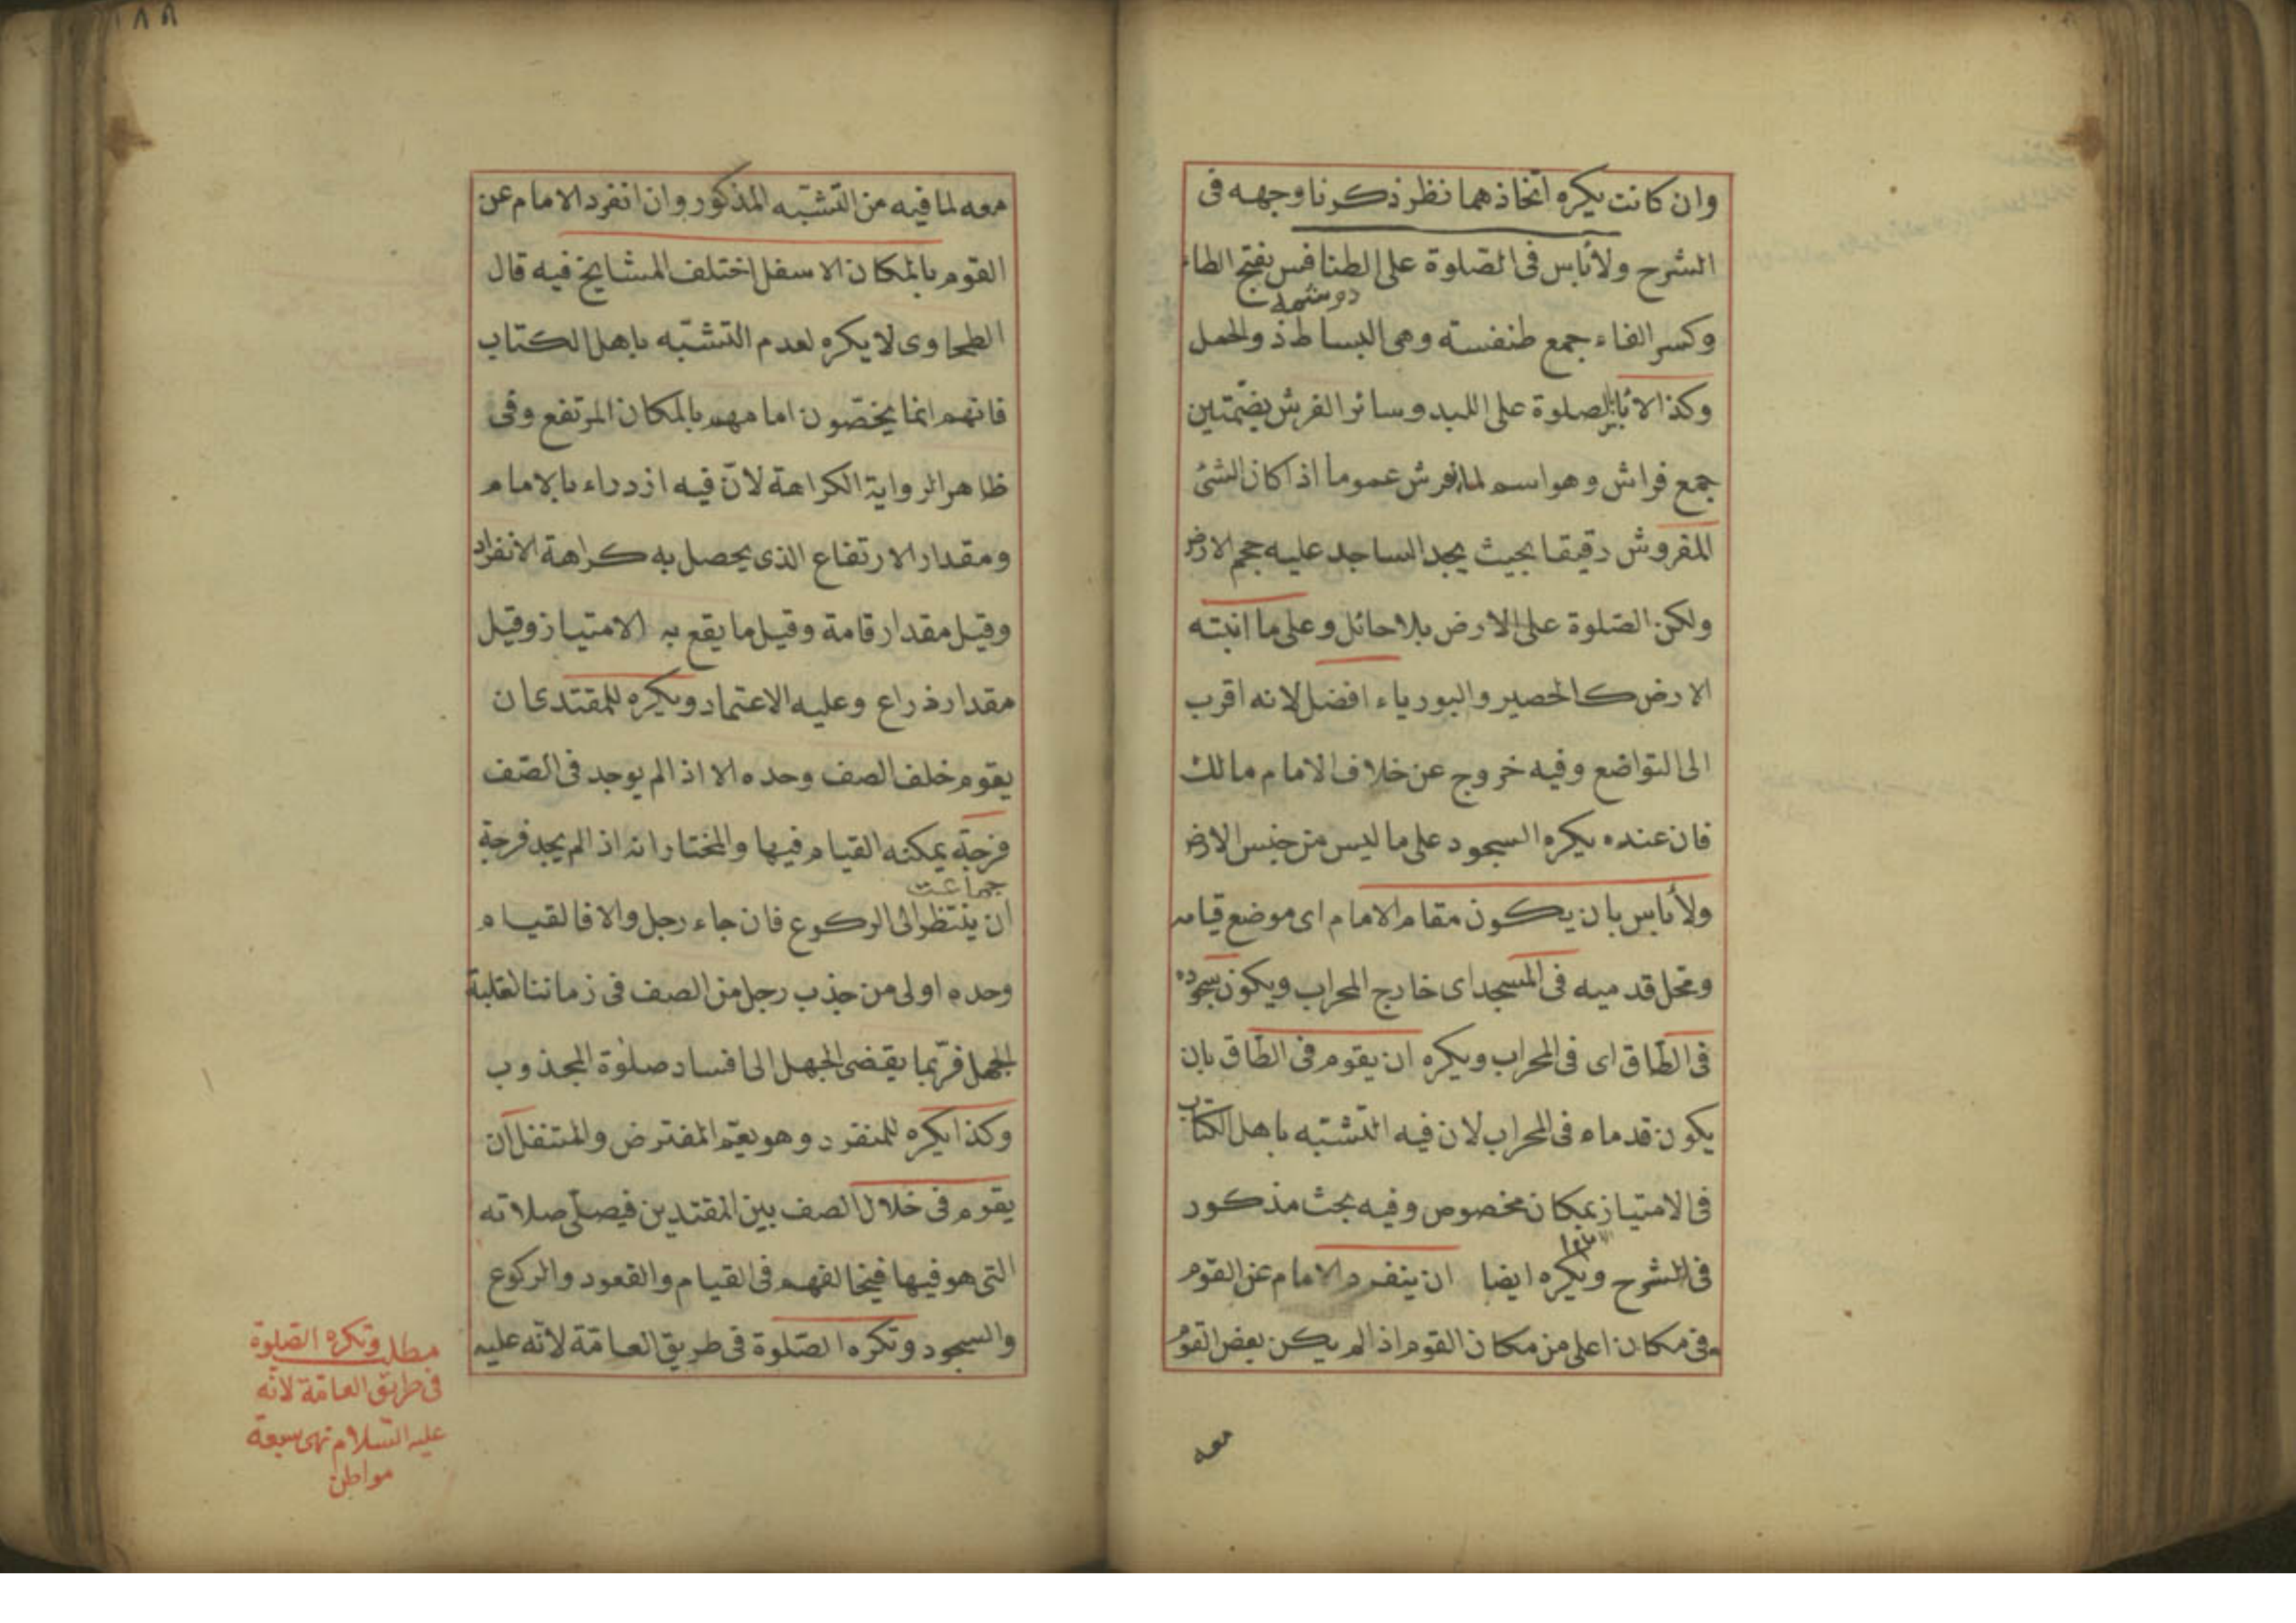 وان كانت يكره اتخاذهما نظر ذكرنا وجهه فى
الشرح ولا بأس فى الصّلوة على الطنافس بفتح الطاء
دوشمه
وكسر الفاء جمع طنفسة وهى البساط ذو الخمل
وكذا لا بأس بالصلوة على اللبد وسائر الفرش بضمّتين
جمع فراش وهو اسم لما يفرش عموما اذا كان الشئ
المفروش دقيقا بحيث يجد الساجد عليه حجم الارض
ولكن الصّلوة على الارض بلا حائل وعلى ما انبته
الارض كالحصير والبورياء افضل لانه اقرب
الى التواضع وفيه خروج عن خلاف الامام مالك
فان عنده يكره السجود على ما ليس من جنس الارض
ولا بأس بان يكون مقام الامام اى موضع قيامه
ومحل قدميه فى المسجد اى خارج المحراب ويكون سجوده
فى الطّاق اى فى المحراب ويكره ان يقوم فى الطّاق بان
يكون قدماه فى المحراب لان فيه التّشبّه باهل الكتاب
فى الامتياز بمكان مخصوص وفيه بحث مذكور
فى الشرح ويكره ايضا ان ينفرد الامام عن القوم
فى مكان اعلى من مكان القوم اذا لم يكن بعض القوم
معه
١٨٨
معه لما فيه من التّشبّه المذكور وان انفرد الامام عن
القوم بالمكان الاسفل اختلف المشايخ فيه قال
الطحاوى لا يكره لعدم التّشبّه باهل الكتاب
فانهم انما يخصّون امامهم بالمكان المرتفع وفى
ظاهر الرواية الكراهة لانّ فيه ازدراء بالامام
ومقدار الارتفاع الذى يحصل به كراهة الانفراد
وقيل مقدار قامة وقيل ما يقع به الامتياز وقيل
مقدار ذراع وعليه الاعتماد ويكره للمقتدى ان
يقوم خلف الصف وحده الا اذا لم يوجد فى الصّف
فرجة يمكنه القيام فيها والمختار انه اذا لم يجد فرجة
جماعت
ان ينتظر الى الركوع فان جاء رجل والا فالقيام
وحده اولى من جذب رجل من الصف فى زماننا لغلبة
الجهل فربّما يفضى الجهل الى افساد صلوة المجذوب
وكذا يكره للمنفرد وهو يعمّ المفترض والمتنفل ان
يقوم فى خلال الصف بين المقتدين فيصلّى صلاته
التى هو فيها فيخالفهم فى القيام والقعود والركوع
والسجود وتكره الصّلوة فى طريق العامّة لانّه عليه
مطلب وتكره الصّلوة
فى طريق العامّة لانّه
عليه السّلام نهى سبعة
مواطن